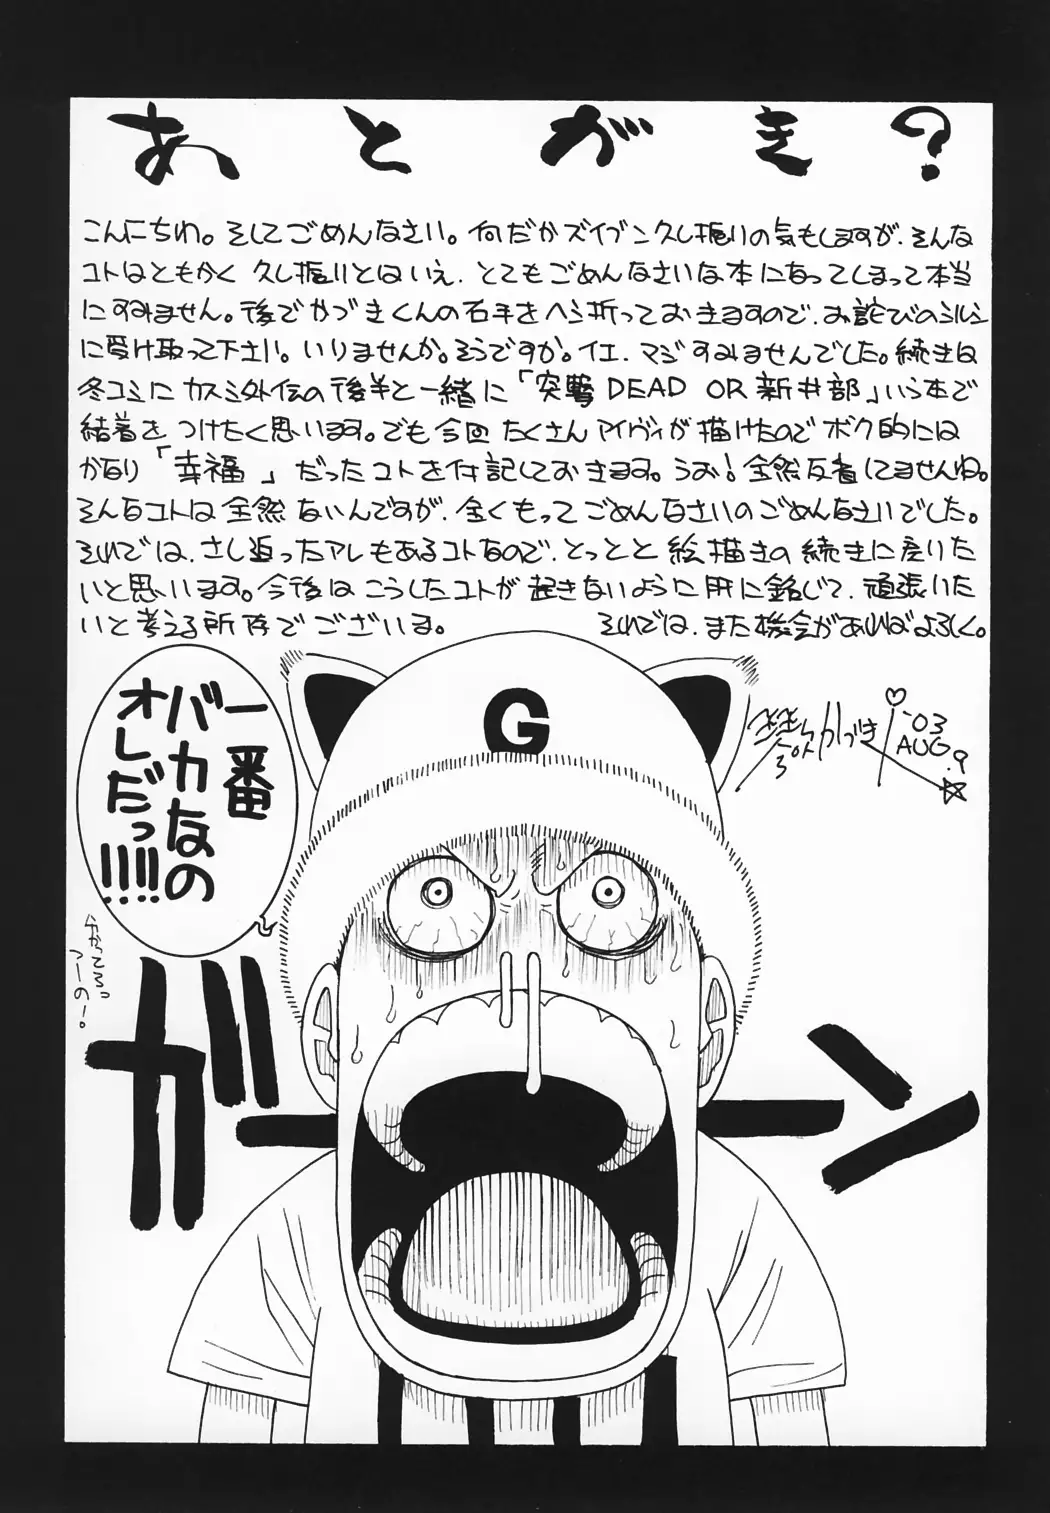 あとがき?
こんにちわ。そしてごめんなさい。何だかズイブン久し振りの気もしますが、そんな
コトはともかく 久し振りとはいえ、とてもごめんなさいな本になってしまって本当
にすみません。後でかづきくんの右手をヘシ折っておきますので、お詫びのシルシ
に受け取って下さい。いりませんか。そうですか。イエ、マジすみませんでした。続きは
冬コミに カスミ外伝の後半と一緒に「突撃 DEAD OR 新井部」いう本で
結着をつけたく思います。でも今回 たくさん アイヴィが描けたので ボク的には
かなり「幸福」だったコトを付記しておきます。うお!全然反省してませんね。
そんなコトは全然ないんですが、全くもって ごめんなさいのごめんなさいでした。
それでは、さし迫ったアレもあるコトなので、とっとと 絵描きの続きに戻りた
いと思います。今後は こうしたコトが起きないように肝に銘じて、頑張りた
いと考える所存でございま。 それでは、また機会があればよろしく。
かづき
'03
AUG.9
G
一番
バカなの
オレだっ!!!!
分かってるっ
つーの!。
ガーン